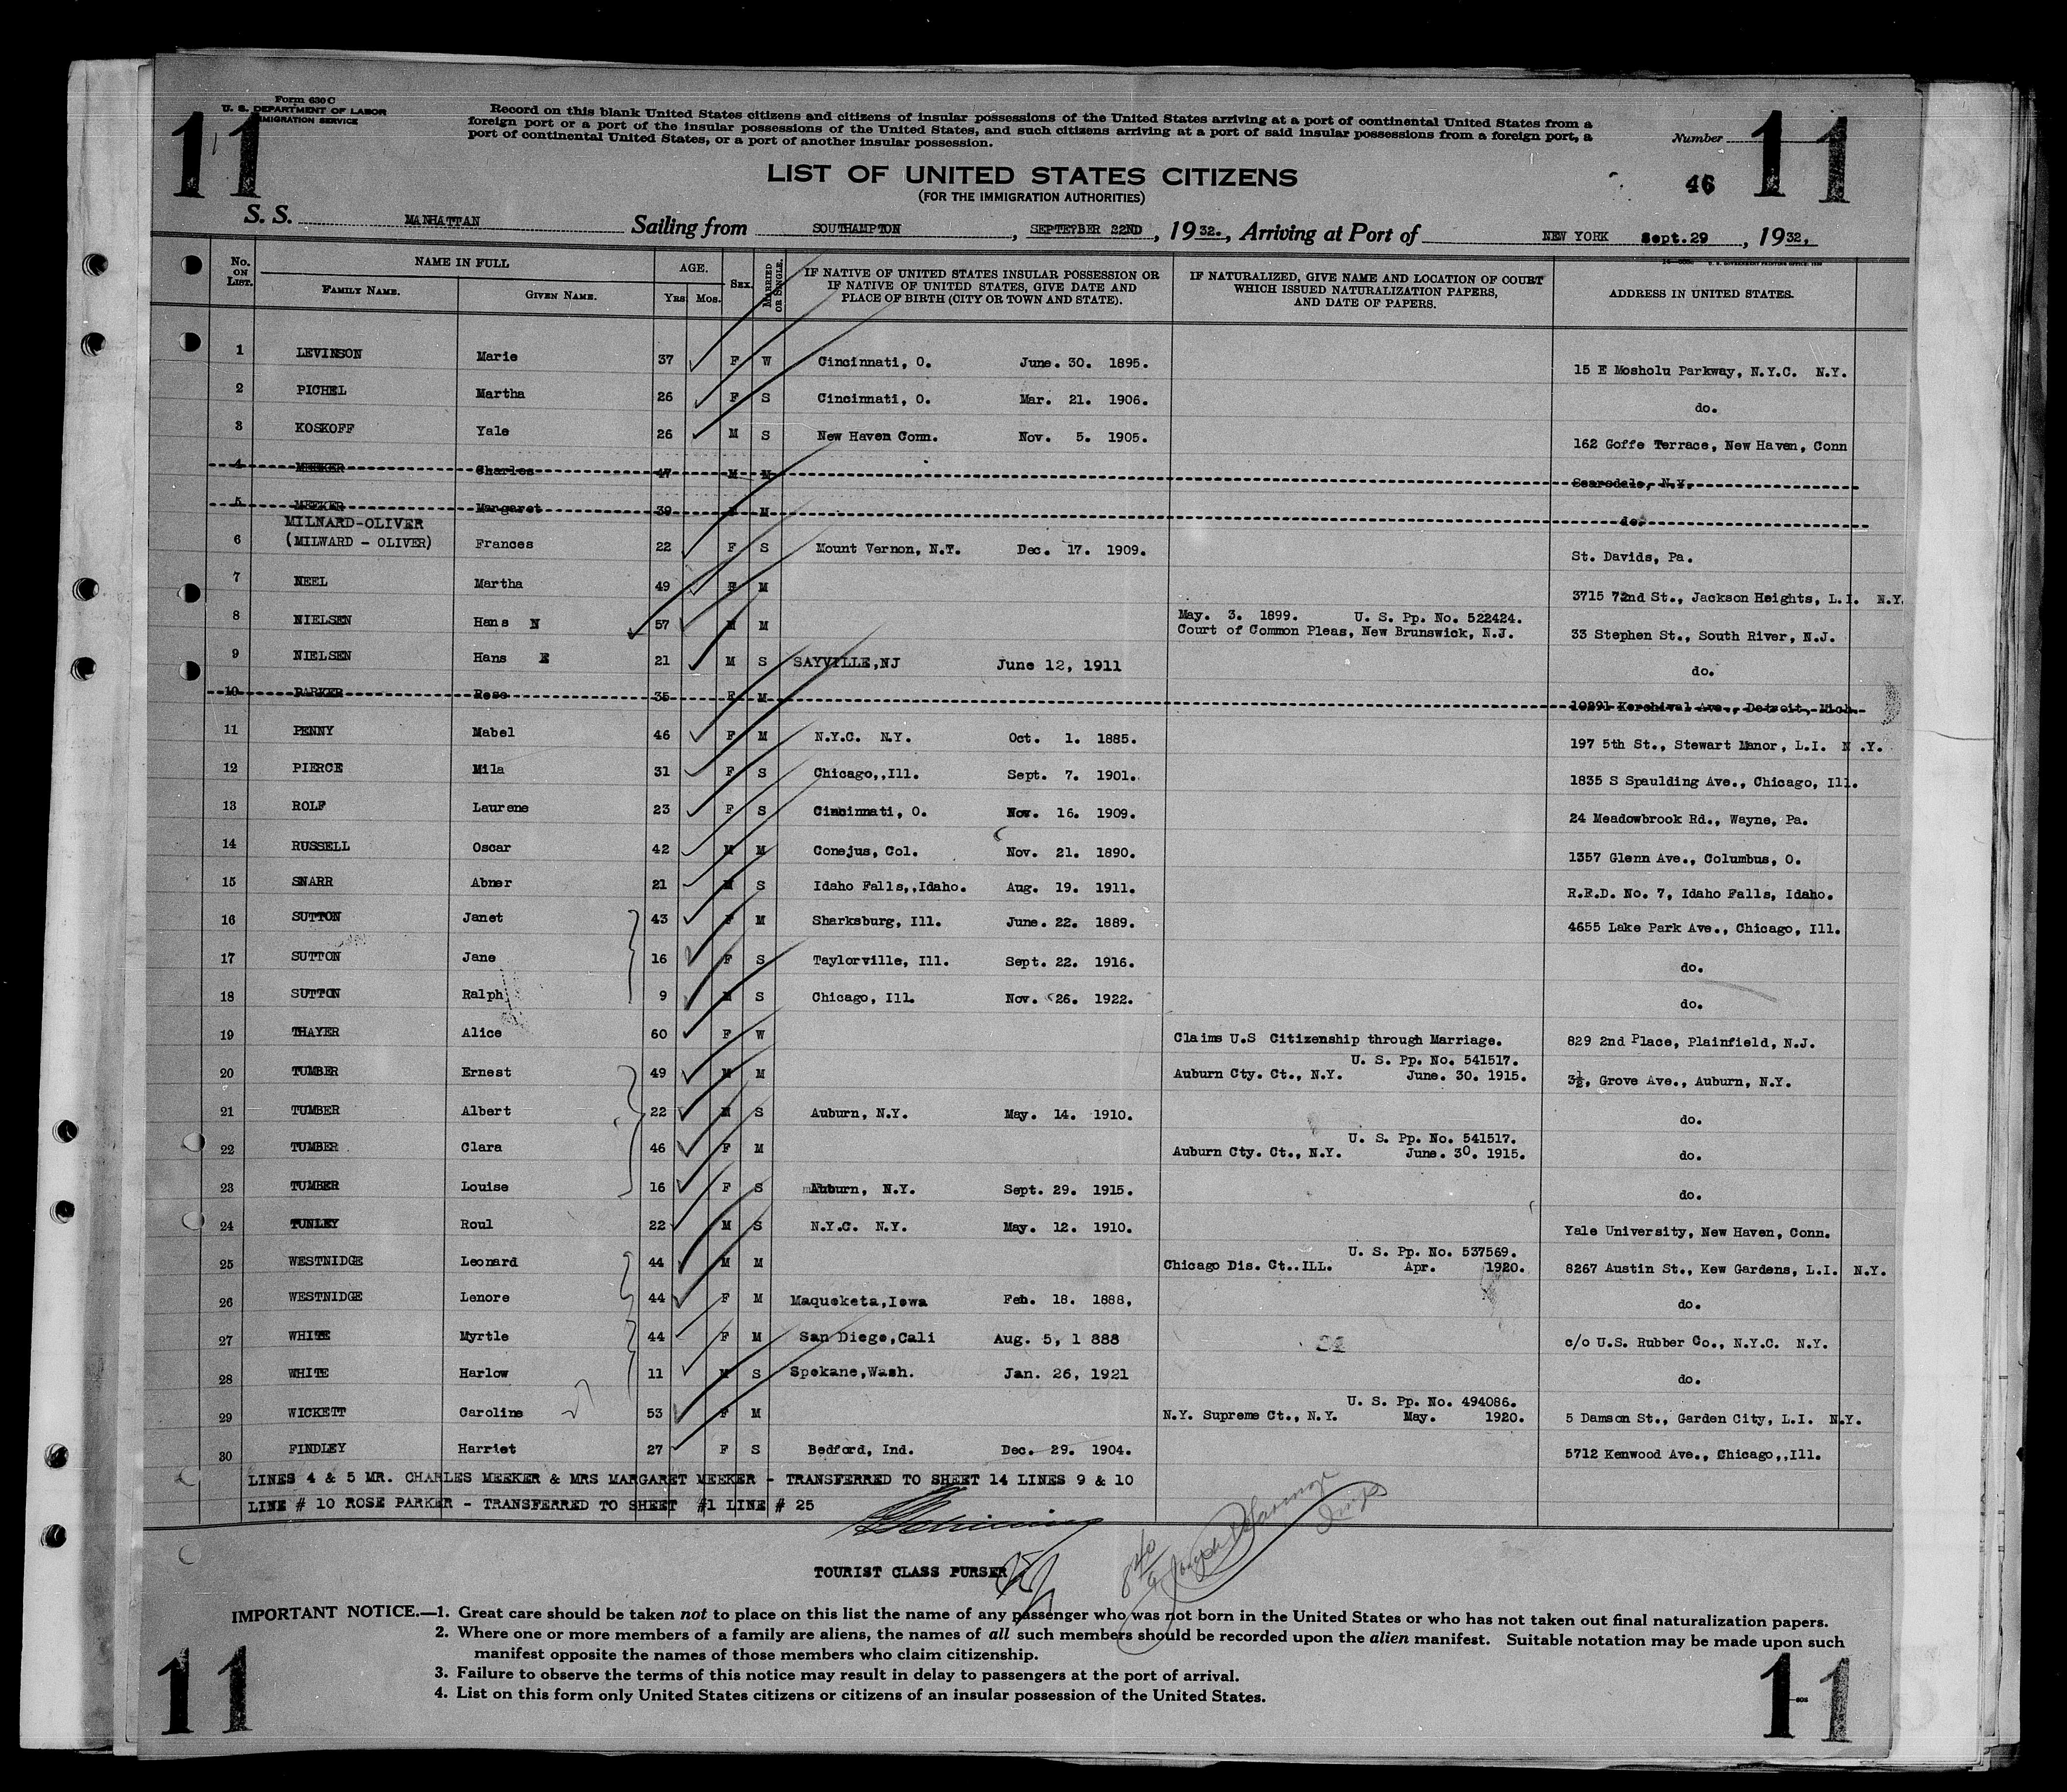 Form 630 C
U. S. DEPARTMENT OF LABOR
IMMIGRATION SERVICE
11
Record on this blank United States citizens and citizens of insular possessions of the United States arriving at a port of continental United States from a
foreign port or a port of the insular possessions of the United States, and such citizens arriving at a port of said insular possessions from a foreign port, a
port of continental United States, or a port of another insular possession.
Number 11
LIST OF UNITED STATES CITIZENS
(FOR THE IMMIGRATION AUTHORITIES)
46
S. S. MANHATTAN Sailing from SOUTHAMPTON, SEPTEPBER 22ND, 1932., Arriving at Port of NEW YORK Sept.29, 1932,
No. ON LIST. NAME IN FULL FAMILY NAME. GIVEN NAME. AGE. Yrs Mos. SEX. MARRIED OR SINGLE. IF NATIVE OF UNITED STATES INSULAR POSSESSION OR IF NATIVE OF UNITED STATES, GIVE DATE AND PLACE OF BIRTH (CITY OR TOWN AND STATE). IF NATURALIZED, GIVE NAME AND LOCATION OF COURT WHICH ISSUED NATURALIZATION PAPERS, AND DATE OF PAPERS. ADDRESS IN UNITED STATES.
1 LEVINSON Marie 37 F W Cincinnati, O. June. 30. 1895. 15 E Mosholu Parkway, N.Y.C. N.Y.
2 PICHEL Martha 26 F S Cincinnati, O. Mar. 21. 1906. do.
3 KOSKOFF Yale 26 M S New Haven Conn. Nov. 5. 1905. 162 Goffe Terrace, New Haven, Conn
4 MEEKER Charles 47 M M Scarsdale, N.Y.
5 MEEKER Margaret 39 M do.
MILNARD-OLIVER
6 (MILWARD - OLIVER) Frances 22 F S Mount Vernon, N.Y. Dec. 17. 1909. St. Davids, Pa.
7 NEEL Martha 49 F M 3715 72nd St., Jackson Heights, L.I. N.Y.
8 NIELSEN Hans N 57 M M May. 3. 1899. U. S. Pp. No. 522424.
Court of Common Pleas, New Brunswick, N.J. 33 Stephen St., South River, N.J.
9 NIELSEN Hans E 21 M S SAYVILLE,NJ June 12, 1911 do.
10 PARKER Rose 35 F M 10291 Kerchival Ave., Detroit, Mich.
11 PENNY Mabel 46 F M N.Y.C. N.Y. Oct. 1. 1885. 197 5th St., Stewart Manor, L.I. N .Y.
12 PIERCE Mila 31 F S Chicago,,Ill. Sept. 7. 1901. 1835 S Spaulding Ave., Chicago, Ill.
13 ROLF Laurene 23 F S Cincinnati, O. Nov. 16. 1909. 24 Meadowbrook Rd., Wayne, Pa.
14 RUSSELL Oscar 42 M M Conejus, Col. Nov. 21. 1890. 1357 Glenn Ave., Columbus, O.
15 SNARR Abner 21 M S Idaho Falls,,Idaho. Aug. 19. 1911. R.R.D. No. 7, Idaho Falls, Idaho.
16 SUTTON Janet 43 F M Sharksburg, Ill. June. 22. 1889. 4655 Lake Park Ave., Chicago, Ill.
17 SUTTON Jane 16 F S Taylorville, Ill. Sept. 22. 1916. do.
18 SUTTON Ralph 9 M S Chicago, Ill. Nov. 26. 1922. do.
19 THAYER Alice 60 F W Claims U.S Citizenship through Marriage. 829 2nd Place, Plainfield, N.J.
U. S. Pp. No. 541517.
20 TUMBER Ernest 49 M M Auburn Cty. Ct., N.Y. June. 30. 1915. 3½, Grove Ave., Auburn, N.Y.
21 TUMBER Albert 22 M S Auburn, N.Y. May. 14. 1910. do.
U. S. Pp. No. 541517.
22 TUMBER Clara 46 F M Auburn Cty. Ct., N.Y. June. 30. 1915. do.
23 TUMBER Louise 16 F S Auburn, N.Y. Sept. 29. 1915. do.
24 TUNLEY Roul 22 M S N.Y.C. N.Y. May. 12. 1910. Yale University, New Haven, Conn.
U. S. Pp. No. 537569.
25 WESTNIDGE Leonard 44 M M Chicago Dis. Ct..ILL. Apr. 1920. 8267 Austin St., Kew Gardens, L.I. N.Y.
26 WESTNIDGE Lenore 44 F M Maquoketa,Iowa Feb. 18. 1888, do.
27 WHITE Myrtle 44 F M San Diego,Cali Aug. 5, 1 888 c/o U.S. Rubber Co., N.Y.C. N.Y.
28 WHITE Harlow 11 M S Spokane,Wash. Jan. 26, 1921 do.
U. S. Pp. No. 494086.
29 WICKETT Caroline 53 F M N.Y. Supreme Ct., N.Y. May. 1920. 5 Damson St., Garden City, L.I. N.Y.
30 FINDLEY Harriet 27 F S Bedford, Ind. Dec. 29. 1904. 5712 Kenwood Ave., Chicago,,Ill.
LINES 4 & 5 MR. CHARLES MEEKER & MRS MARGARET MEEKER - TRANSFERRED TO SHEET 14 LINES 9 & 10
LINE # 10 ROSE PARKER - TRANSFERRED TO SHEET #1 LINE # 25
TOURIST CLASS PURSER
IMPORTANT NOTICE.—1. Great care should be taken not to place on this list the name of any passenger who was not born in the United States or who has not taken out final naturalization papers.
2. Where one or more members of a family are aliens, the names of all such members should be recorded upon the alien manifest. Suitable notation may be made upon such
manifest opposite the names of those members who claim citizenship.
3. Failure to observe the terms of this notice may result in delay to passengers at the port of arrival.
4. List on this form only United States citizens or citizens of an insular possession of the United States.
11
11